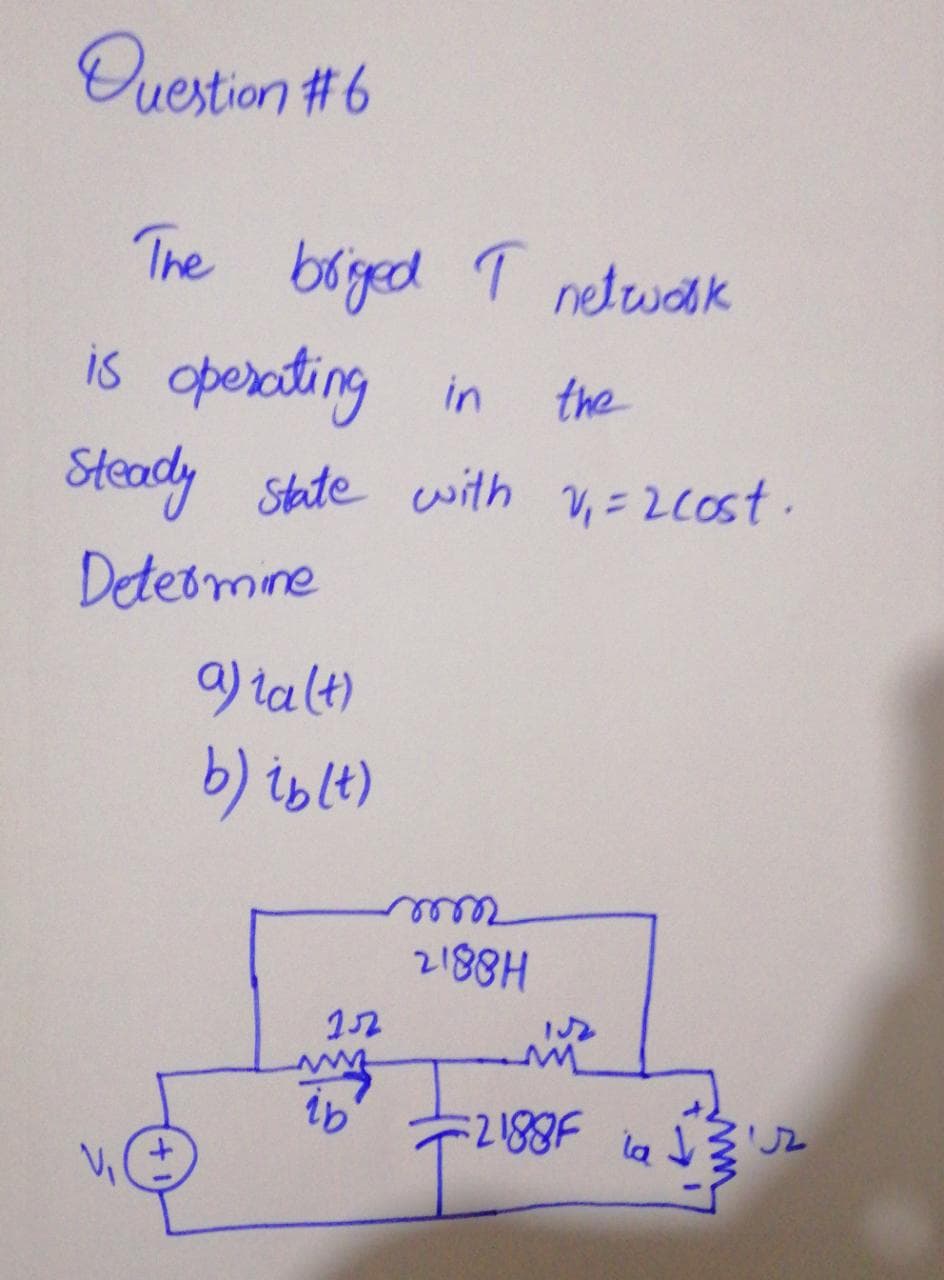 Question #6
The briged T network
is operating in the
steady state with v₁ = 2cost.
Determine
a) ia(t)
b) ib(t)
2188H
1Ω 1Ω
ib
V₁ + - 2188F ia + - 1Ω